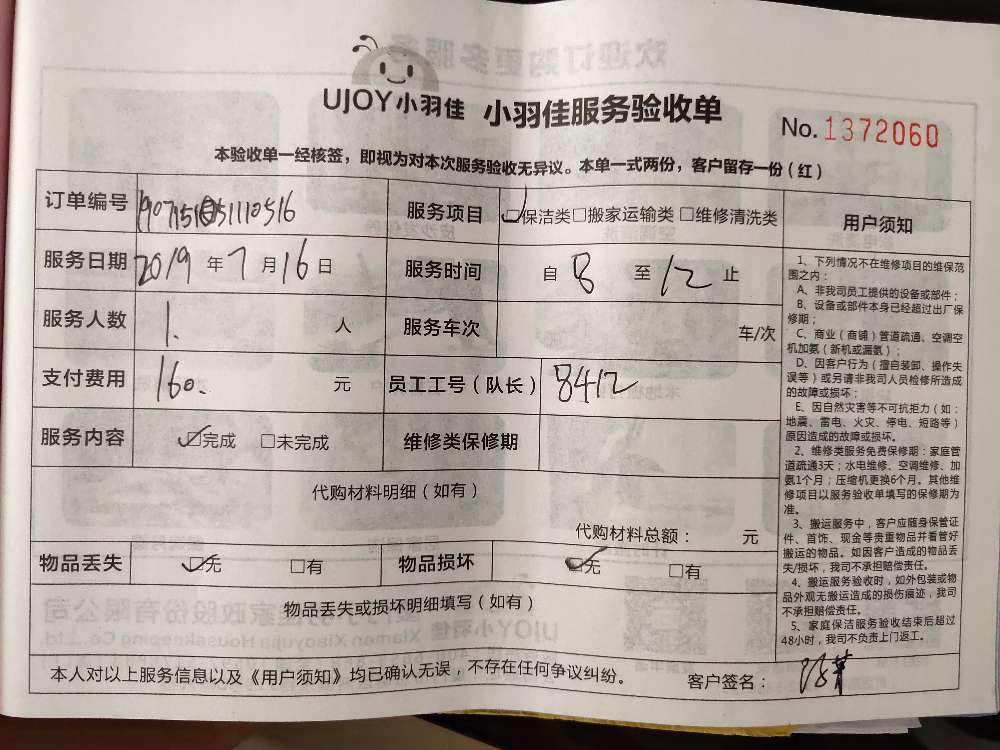 UJOY小羽佳 小羽佳服务验收单
No.1372060
本验收单一经核签，即视为对本次服务验收无异议。本单一式两份，客户留存一份（红）
订单编号
服务项目 保洁类 搬家运输类 维修清洗类
服务日期 2019 年 7 月 16 日
服务时间 自 8 至 12 止
服务人数 1. 人
服务车次 车/次
支付费用 160. 元
员工工号（队长） 8412
服务内容 完成 未完成
维修类保修期
代购材料明细（如有）
代购材料总额： 元
物品丢失 无 有
物品损坏 无 有
物品丢失或损坏明细填写（如有）
本人对以上服务信息以及《用户须知》均已确认无误，不存在任何争议纠纷。
客户签名：
用户须知
1、下列情况不在维修项目的维保范
围之内：
A、非我司员工提供的设备或部件；
B、设备或部件本身已经超过出厂保
修期；
C、商业（商铺）管道疏通、空调空
机加氨（新机或漏氨）；
D、因客户行为（擅自装卸、操作失
误等）或另请非我司人员检修所造成
的故障或损坏；
E、因自然灾害等不可抗拒力（如：
地震、雷电、火灾、停电、短路等）
原因造成的故障或损坏。
2、维修类服务免费保修期：家庭管
道疏通3天；水电维修、空调维修、加
氨1个月；压缩机更换6个月。其他维
修项目以服务验收单填写的保修期为
准。
3、搬运服务中，客户应随身保管证
件、首饰、现金等贵重物品并看管好
搬运的物品。如因客户造成的物品丢
失/损坏，我司不承担赔偿责任。
4、搬运服务验收时，如外包装或物
品外观无搬运造成的损伤痕迹，我司
不承担赔偿责任。
5、家庭保洁服务验收结束后超过
48小时，我司不负责上门返工。